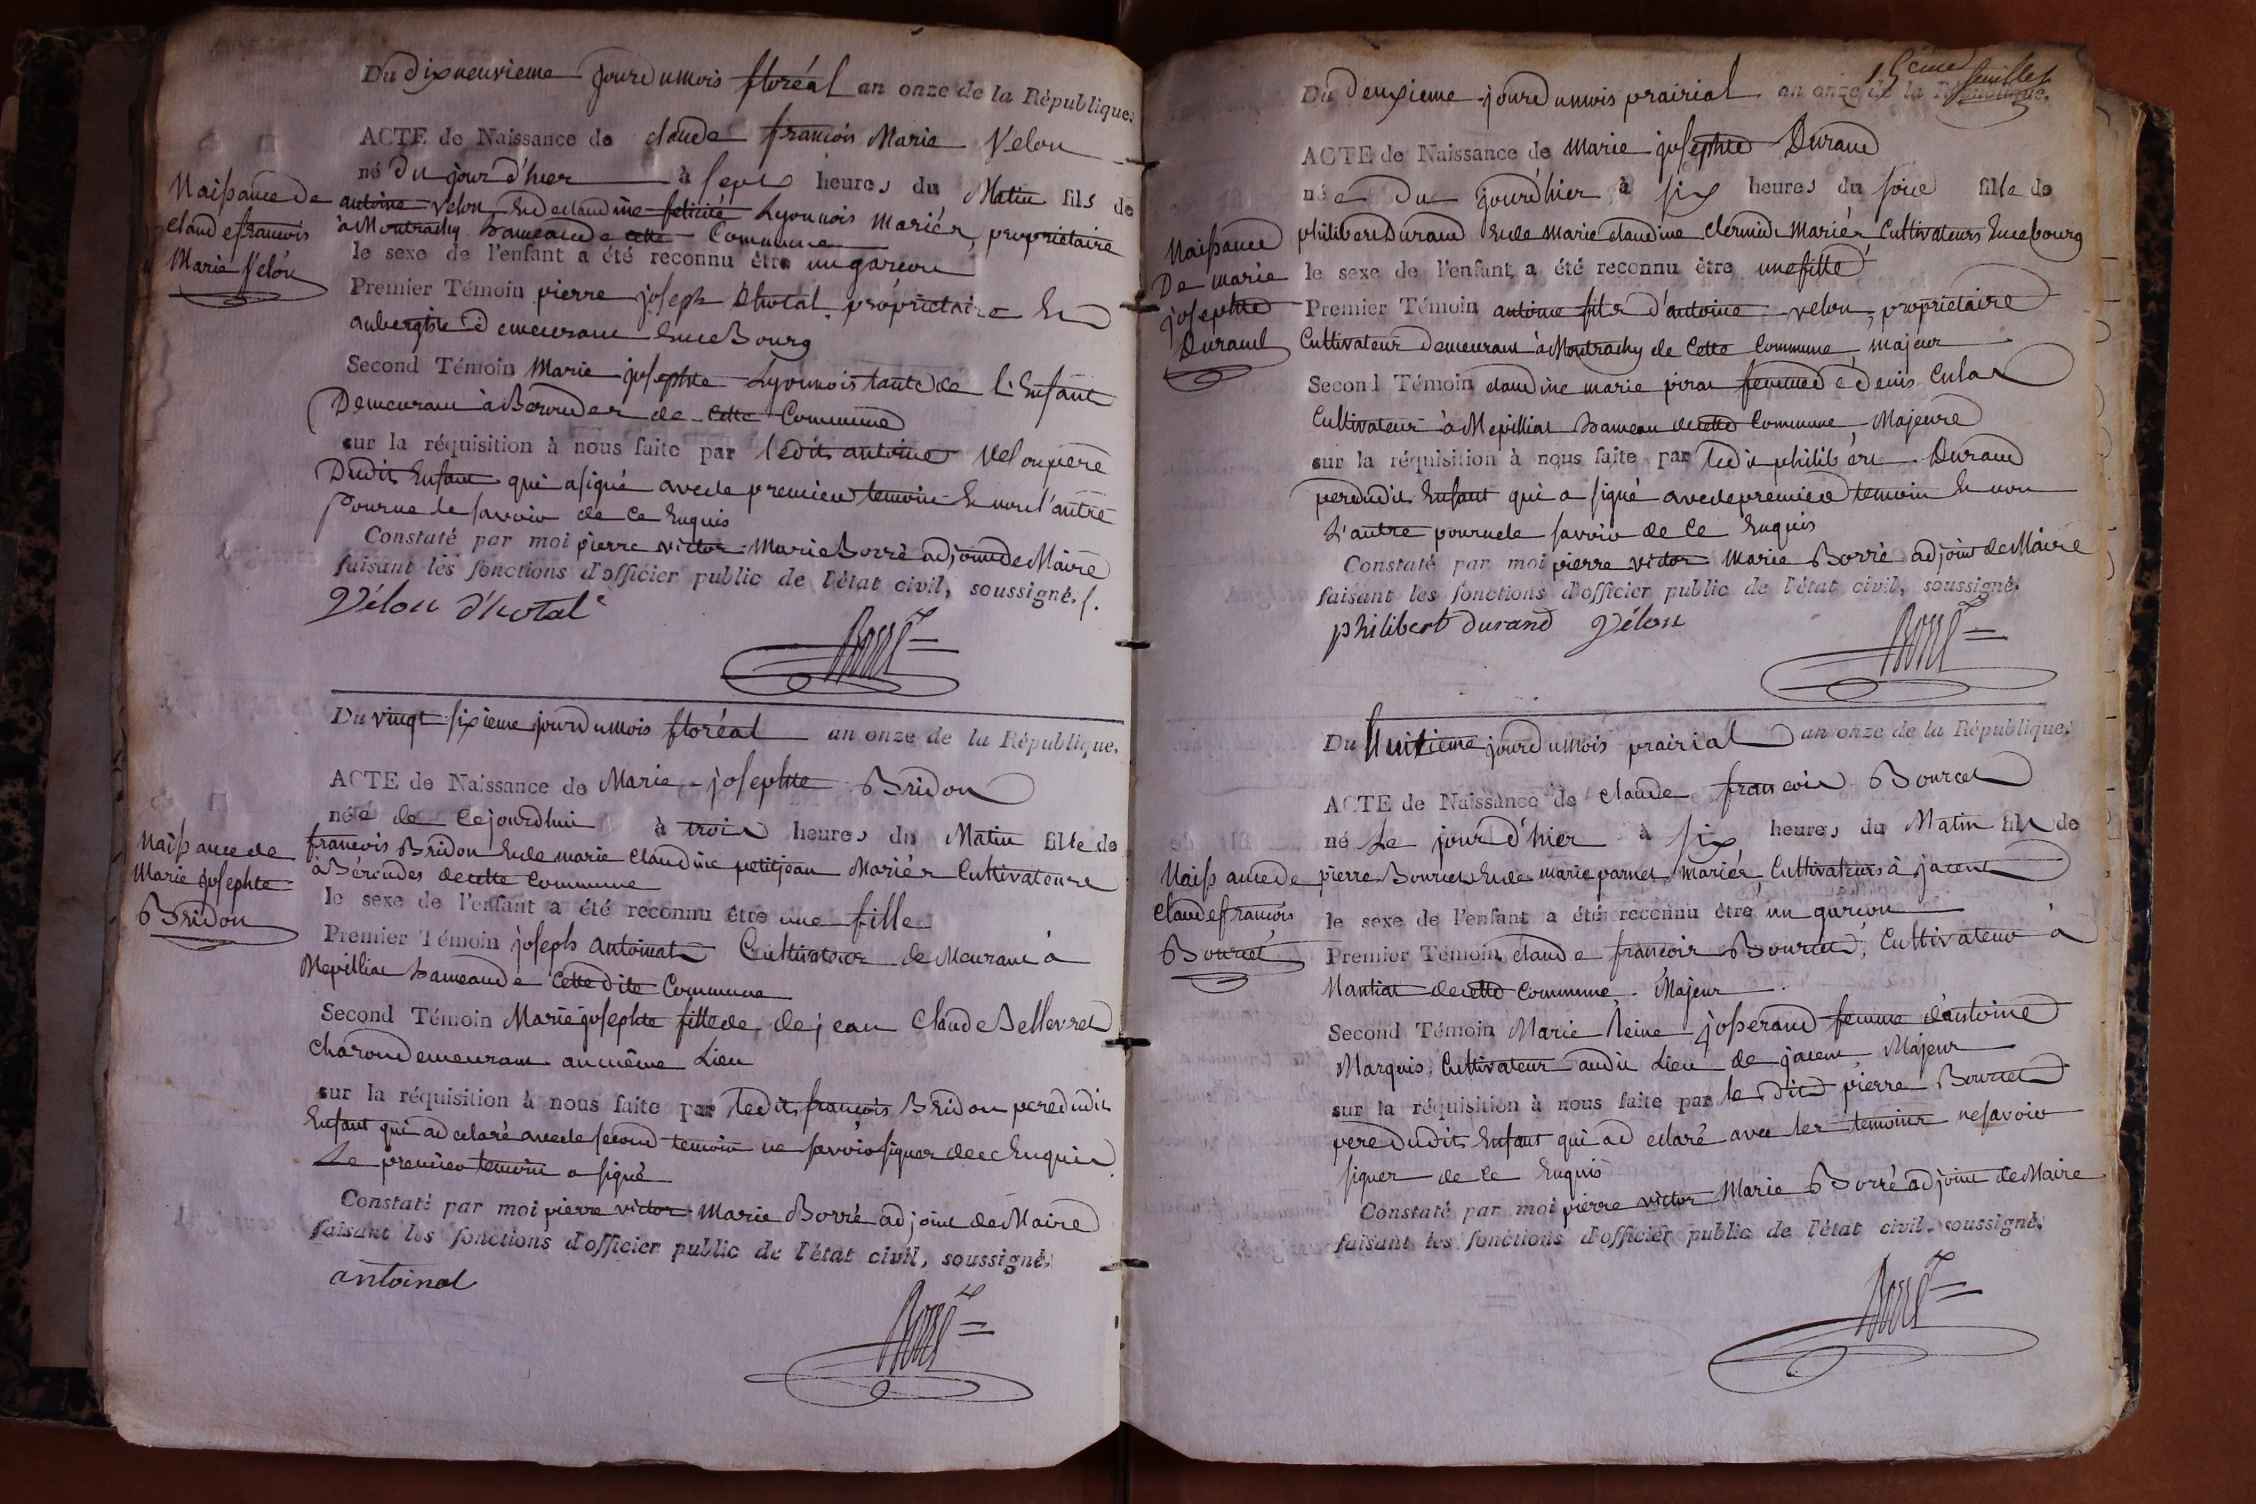 Du dixneuvieme jour du mois floréal an onze de la République.
ACTE de Naissance de claude francois Marie Velon
né du jour d'hier à sept heures du Matin fils de
antoine velon, Et de claudine felicité Lyonnois Mariés, proprietaire
à Montrachy hameau de cette Commune
le sexe de l'enfant a été reconnu être un garcon
Premier Témoin pierre joseph Dhotal proprietaire Et
aubergiste demeurant En ce Bourg
Second Témoin Marie josephte Lyonnois tante de l'Enfant
Demeurant à Beroudes de cette Commune
sur la réquisition à nous faite par ledit antoine Velon pere
Dudit Enfant qui a signé avec le premier temoin Et non l'autre
pour ne le savoir de ce Enquis
Constaté par moi pierre victor Marie Borré adjoint de Maire
faisant les fonctions d'officier public de l'état civil, soussigné.
Vélon d'hotal
Borré
Naissance de
claude francois
Marie Velon
Du vingt sixieme jour du mois floréal an onze de la République.
ACTE de Naissance de Marie josephte Bridon
née de Cejourdhui à trois heures du Matin fille de
francois Bridon Et de marie claudine petitjean Mariés Cultivateurs
à Béroudes de cette Commune
le sexe de l'enfant a été reconnu être une fille
Premier Témoin joseph antoinat Cultivateur de Meurant à
Mepilliat hameau de Cette dite Commune
Second Témoin Marie josephte fille de de jean Claude Bellevret
charon demeurant au même Lieu
sur la réquisition à nous faite par ledit francois Bridon pere dudit
Enfant qui a declaré avec le second temoin ne savoir signer de ce Enquis
Le premier temoin a signé
Constaté par moi pierre victor Marie Borré adjoint de Maire
faisant les fonctions d'officier public de l'état civil, soussigné.
antoinat
Borré
Naissance de
Marie josephte
Bridon
15eme feuillet
Du Deuxieme jour du mois prairial an onze de la République.
ACTE de Naissance de Marie josephte Durand
née Du jourd'hier à six heures du soire fille de
philibert Durand Et de Marie claudine Clermidi Mariés Cultivateurs En ce bourg
le sexe de l'enfant a été reconnu être une fille
Premier Témoin antoine fils d'antoine velon, propriétaire
Cultivateur Demeurant à Montrachy de Cette Commune, majeur
Second Témoin claudine marie piran femme de Denis Culas
Cultivateur à Mepilliat hameau de cette Commune, Majeure
sur la réquisition à nous faite par ledit philibert Durand
pere dudit Enfant qui a signé avec le premier temoin Et non
L'autre pour ne le savoir de ce Enquis
Constaté par moi pierre victor Marie Borré adjoint de Maire
faisant les fonctions d'officier public de l'état civil, soussigné.
philibert durand Vélon
Borré
Naissance
De marie
josephte
Durand
Du huitieme jour du mois prairial an onze de la République.
ACTE de Naissance de claude francois Bourcet
né Le jour d'hier à six heures du Matin fils de
pierre Bourcet Et de marie parnet, mariés, Cultivateurs à jacent
le sexe de l'enfant a été reconnu être un garcon
Premier Témoin claude francois Bourcet, Cultivateur à
Nantiat de cette Commune. Majeur
Second Témoin Marie Reine josserand femme d'antoine
Marquis, Cultivateur audit Lieu de jacent Majeur
sur la réquisition à nous faite par le dit pierre Bourcet
pere Dudit Enfant qui a declaré avec les temoins ne savoir
signer de ce Enquis
Constaté par moi pierre victor Marie Borré adjoint de Maire
faisant les fonctions d'officier public de l'état civil, soussigné.
Borré
Naissance de
claude francois
Bourcet